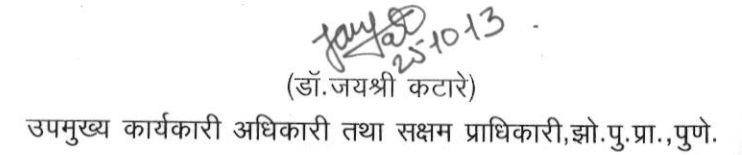 25-10-13
(डॉ.जयश्री कटारे)
उपमुख्य कार्यकारी अधिकारी तथा सक्षम प्राधिकारी,झो.पु.प्रा.,पुणे.